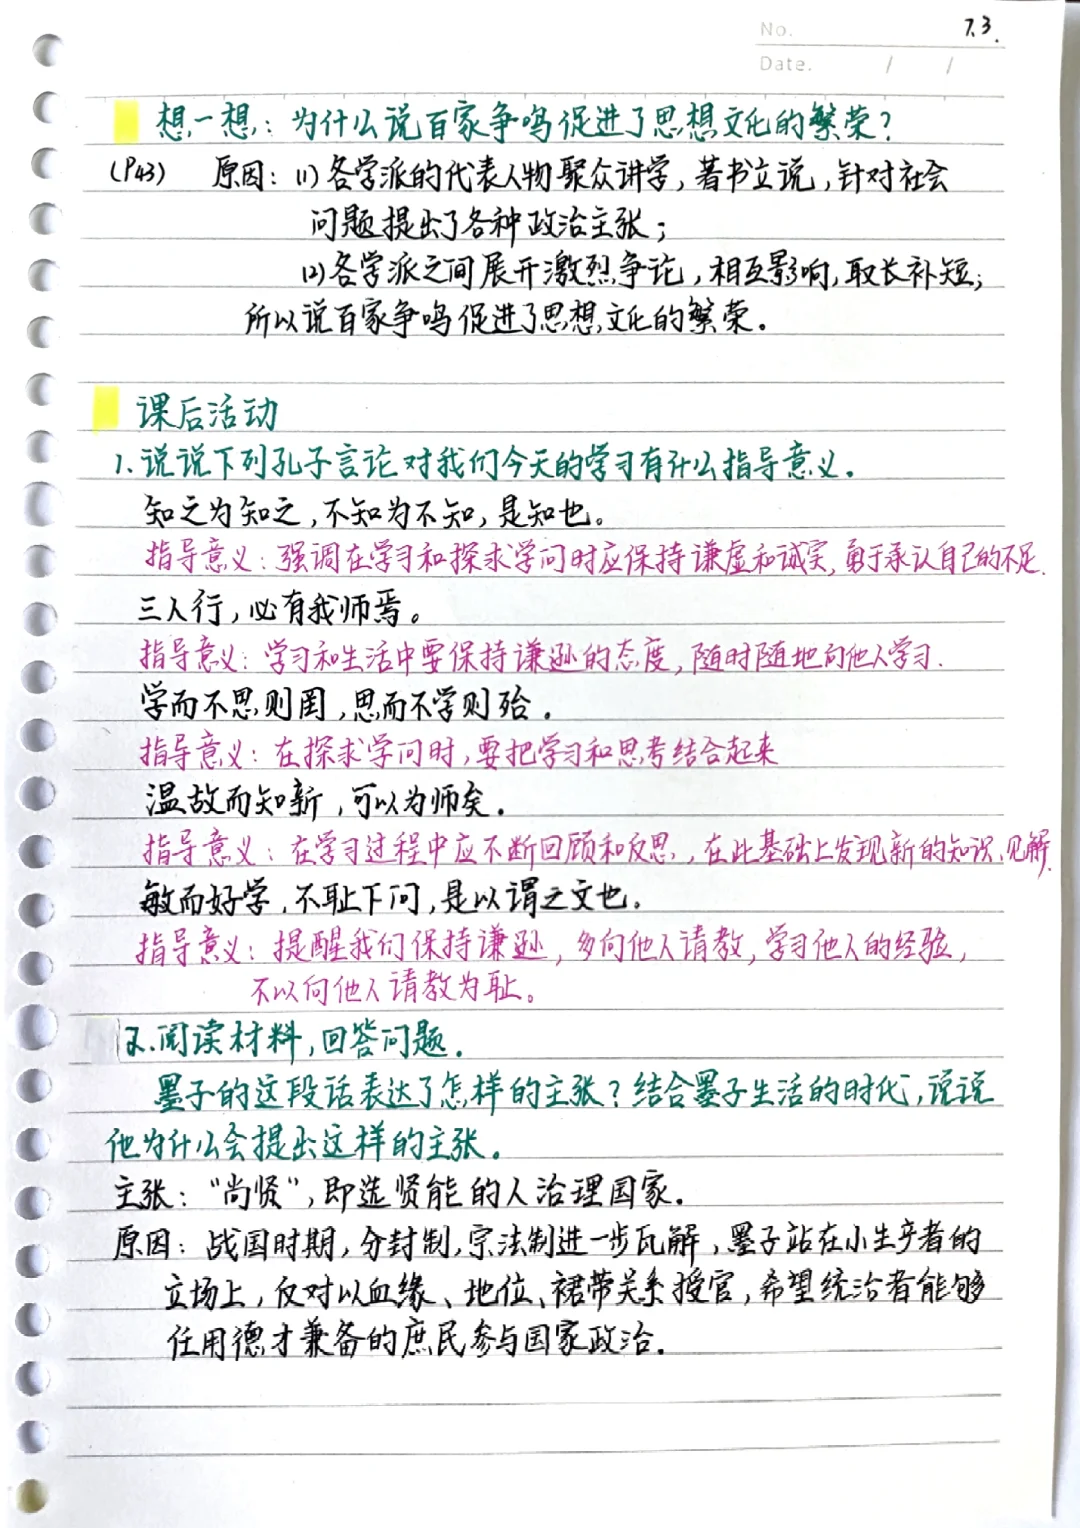 No. 7.3.
Date. / /
想一想：为什么说百家争鸣促进了思想文化的繁荣？
(P43) 原因：(1)各学派的代表人物聚众讲学，著书立说，针对社会
问题提出了各种政治主张；
(2)各学派之间展开激烈争论，相互影响，取长补短；
所以说百家争鸣促进了思想文化的繁荣。
课后活动
1.说说下列孔子言论对我们今天的学习有什么指导意义。
知之为知之，不知为不知，是知也。
指导意义：强调在学习和探求学问时应保持谦虚和诚实，勇于承认自己的不足.
三人行，必有我师焉。
指导意义：学习和生活中要保持谦逊的态度，随时随地向他人学习.
学而不思则罔，思而不学则殆。
指导意义：在探求学问时，要把学习和思考结合起来
温故而知新，可以为师矣。
指导意义：在学习过程中应不断回顾和反思，在此基础上发现新的知识、见解.
敏而好学，不耻下问，是以谓之文也。
指导意义：提醒我们保持谦逊，多向他人请教，学习他人的经验，
不以向他人请教为耻。
2.阅读材料，回答问题。
墨子的这段话表达了怎样的主张？结合墨子生活的时代，说说
他为什么会提出这样的主张。
主张：“尚贤”，即选贤能的人治理国家。
原因：战国时期，分封制，宗法制进一步瓦解，墨子站在小生产者的
立场上，反对以血缘、地位、裙带关系授官，希望统治者能够
任用德才兼备的庶民参与国家政治。